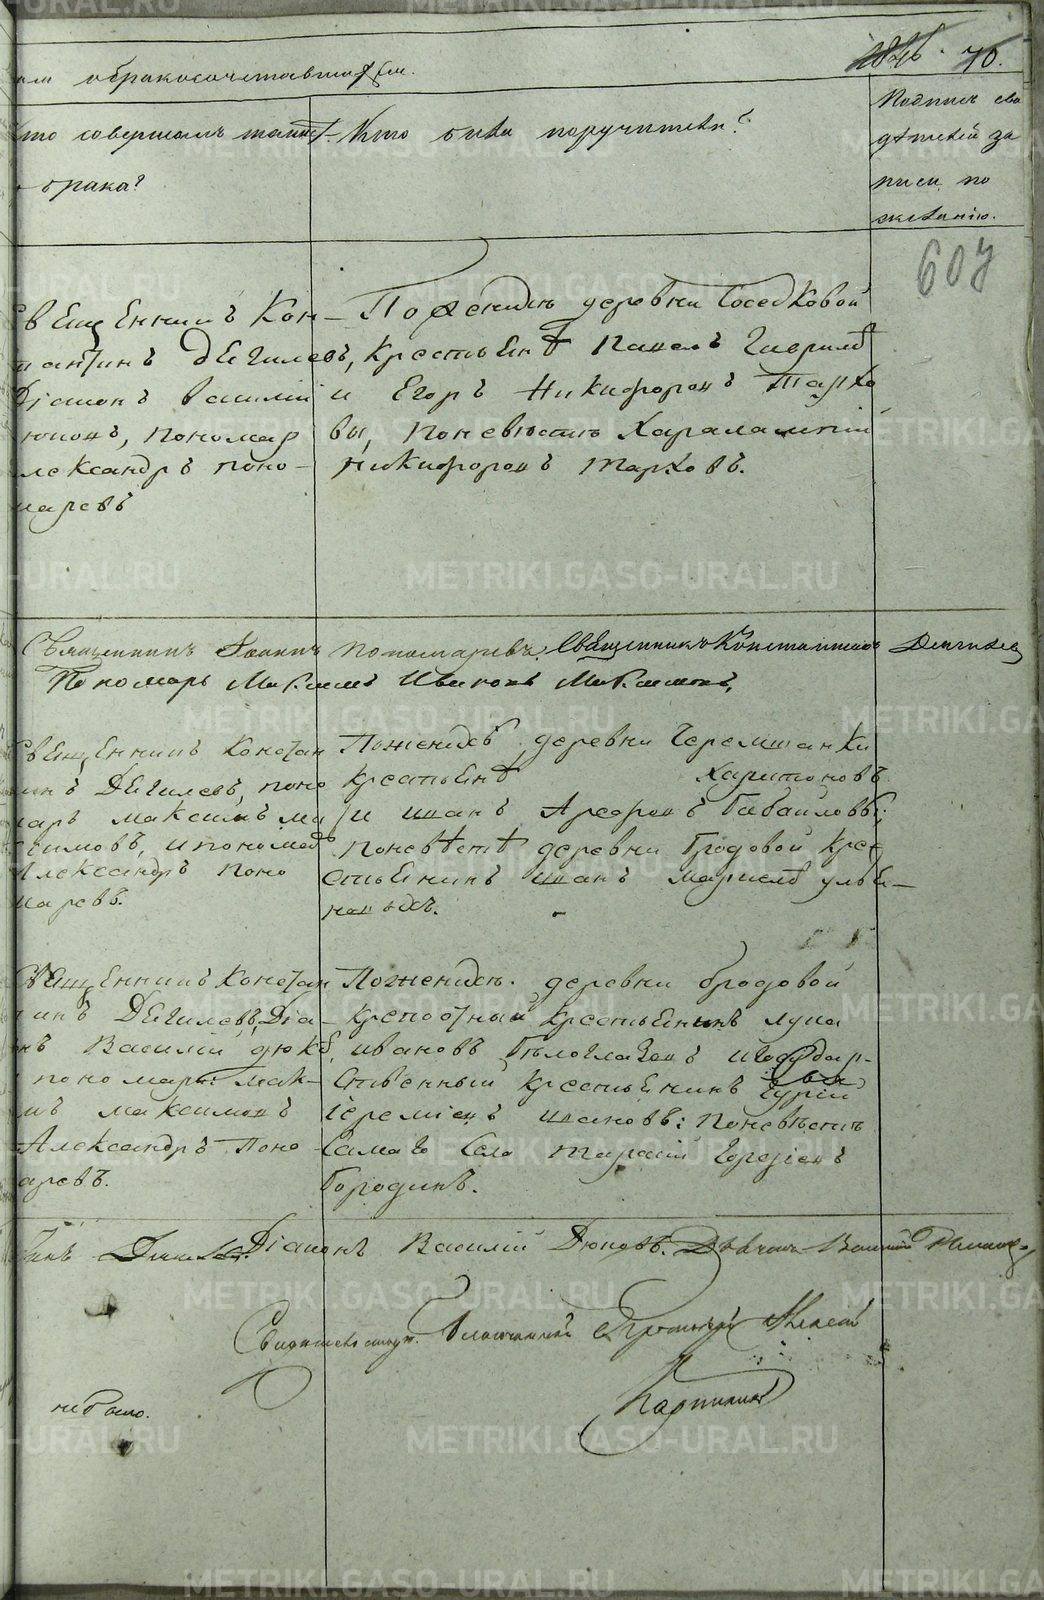 обракосочетавшихся.
1846. 70.
кто совершалъ таинст-
брака?
Кто были поручители?
Подписи сви
дѣтелей за
писи по
желанію.
607
священникъ Кон-
стантинъ Дягилевъ,
Діаконъ Василій
Дюковъ, пономарь
Александръ Поно-
маревъ
По женихѣ деревни Соседковой
крестьянѣ Павелъ Гаврилов
и Егоръ Никифоровъ Тарко
вы, по невѣстѣ Харалампій
Никифоровъ Тарковъ.
Священникъ Іоаннъ Пономаревъ. Священникъ Константинъ Дягилевъ
Пономарь Максимъ Ивановъ Максимовъ,
священникъ Констан
инъ Дягилевъ, поно
марь Максимъ Ма
симовъ, и пономарь
Александръ Поно
маревъ.
По женихѣ деревни Черемшанки
крестьянѣ Харитоновъ
и Иванъ Арефовъ Бабайловы;
по невѣстѣ деревни Бродовой крес
тьянинъ Иванъ
священникъ Констан
инъ Дягилевъ, Діа-
нъ Василій Дюковъ,
пономари: Мак-
имъ Максимовъ
Александръ Поно
аревъ.
По женихѣ деревни Бродовой
крепостный крестьянинъ Лука
Ивановъ Бѣлоглазовъ и Государ-
ственный крестьянинъ Гурій
Іереміевъ Ивановъ: по невѣстѣ
самаго села Тарасій
Бородинъ.
Діаконъ Василій Дюковъ.
Свидетельствов. Благочинный Протоіерей Алексій
не было.
METRIKI.GASO-URAL.RU